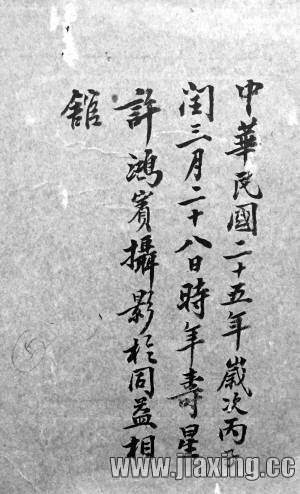 中華民國二十五年歲次丙子
閏三月二十八日時年壽星
許鴻賓攝影於同益相
館
www.jiaxing.cc